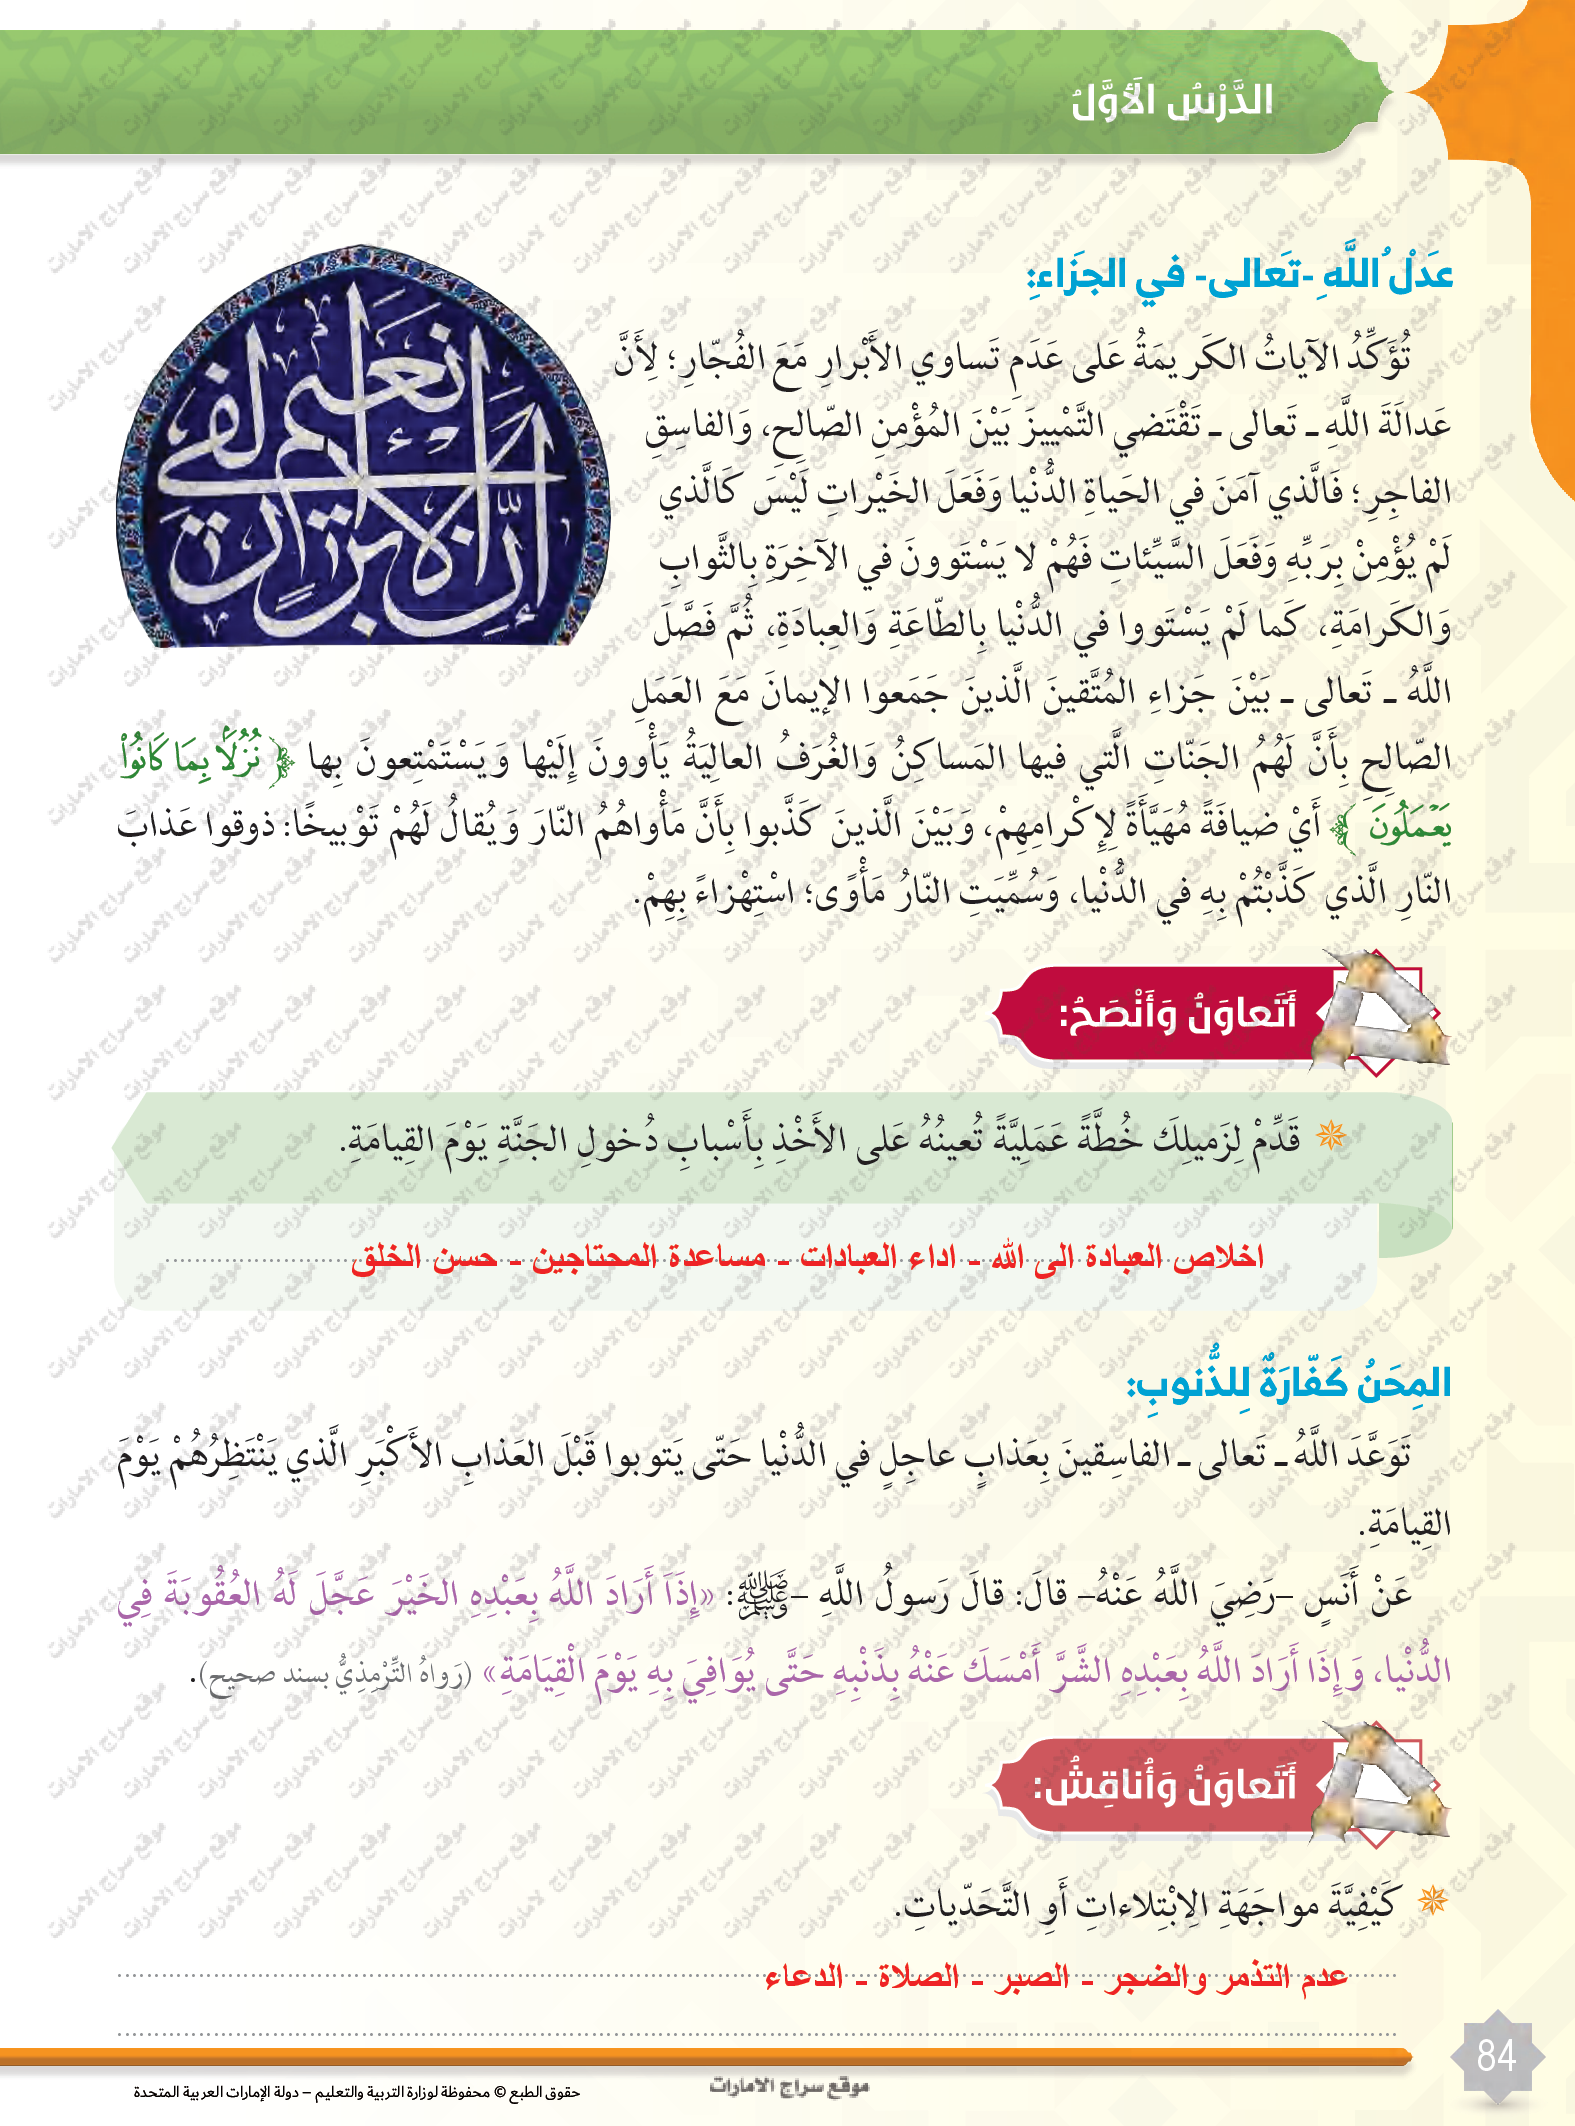 الدَّرْسُ الأَوَّلُ
عَدْلُ اللَّهِ -تَعالى- في الجَزَاءِ:
إن الأبرار لفي نعيم
تُؤَكِّدُ الآياتُ الكَريمَةُ عَلى عَدَمِ تَساوي الأَبْرارِ مَعَ الفُجّارِ؛ لِأَنَّ
عَدالَةَ اللَّهِ ـ تَعالى ـ تَقْتَضي التَّمْييزَ بَيْنَ المُؤْمِنِ الصّالِحِ، وَالفاسِقِ
الفاجِرِ؛ فَالَّذي آمَنَ في الحَياةِ الدُّنْيا وَفَعَلَ الخَيْراتِ لَيْسَ كَالَّذي
لَمْ يُؤْمِنْ بِرَبِّهِ وَفَعَلَ السَّيِّئاتِ فَهُمْ لا يَسْتَوونَ في الآخِرَةِ بِالثَّوابِ
وَالكَرامَةِ، كَما لَمْ يَسْتَووا في الدُّنْيا بِالطّاعَةِ وَالعِبادَةِ، ثُمَّ فَصَّلَ
اللَّهُ ـ تَعالى ـ بَيْنَ جَزاءِ المُتَّقينَ الَّذينَ جَمَعوا الإيمانَ مَعَ العَمَلِ
الصّالِحِ بِأَنَّ لَهُمُ الجَنّاتِ الَّتي فيها المَساكِنُ وَالغُرَفُ العالِيَةُ يَأْوونَ إِلَيْها وَيَسْتَمْتِعونَ بِها ﴿ نُزُلًا بِمَا كَانُوا۟
يَعْمَلُونَ ﴾ أَيْ ضيافَةً مُهَيَّأَةً لِإِكْرامِهِمْ، وَبَيْنَ الَّذينَ كَذَّبوا بِأَنَّ مَأْواهُمُ النّارَ وَيُقالُ لَهُمْ تَوْبيخًا: ذوقوا عَذابَ
النّارِ الَّذي كَذَّبْتُمْ بِهِ في الدُّنْيا، وَسُمِّيَتِ النّارُ مَأْوًى؛ اسْتِهْزاءً بِهِمْ.
أَتَعاوَنُ وَأَنْصَحُ:
قَدِّمْ لِزَميلِكَ خُطَّةً عَمَلِيَّةً تُعينُهُ عَلى الأَخْذِ بِأَسْبابِ دُخولِ الجَنَّةِ يَوْمَ القِيامَةِ.
اخلاص العبادة الى الله - اداء العبادات - مساعدة المحتاجين - حسن الخلق
المِحَنُ كَفّارَةٌ لِلذُّنوبِ:
تَوَعَّدَ اللَّهُ ـ تَعالى ـ الفاسِقينَ بِعَذابٍ عاجِلٍ في الدُّنْيا حَتّى يَتوبوا قَبْلَ العَذابِ الأَكْبَرِ الَّذي يَنْتَظِرُهُمْ يَوْمَ
القِيامَةِ.
عَنْ أَنَسٍ –رَضِيَ اللَّهُ عَنْهُ– قالَ: قالَ رَسولُ اللَّهِ –ﷺ: «إِذَا أَرَادَ اللَّهُ بِعَبْدِهِ الخَيْرَ عَجَّلَ لَهُ العُقُوبَةَ فِي
الدُّنْيا، وَإِذَا أَرَادَ اللَّهُ بِعَبْدِهِ الشَّرَّ أَمْسَكَ عَنْهُ بِذَنْبِهِ حَتَّى يُوَافِيَ بِهِ يَوْمَ الْقِيَامَةِ» (رَواهُ التِّرْمِذِيُّ بسند صحيح).
أَتَعاوَنُ وَأُناقِشُ:
كَيْفِيَّةَ مواجَهَةِ الِابْتِلاءاتِ أَوِ التَّحَدّياتِ.
عدم التذمر والضجر - الصبر - الصلاة - الدعاء
84
موقع سراج الامارات
حقوق الطبع © محفوظة لوزارة التربية والتعليم – دولة الإمارات العربية المتحدة